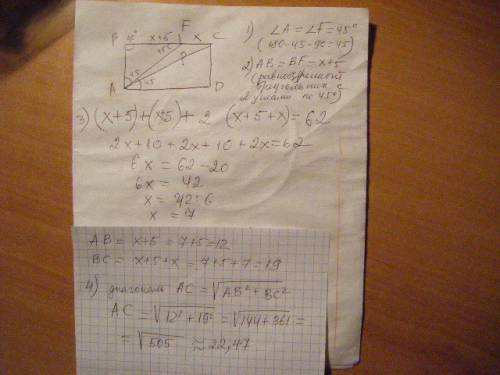 B 90° x+5 F x C
45°
45
45
?
A D
1) ∠A = ∠F = 45°
(180-45-90=45)
2) AB = BF = x+5
(равнобедренный
треугольник с
2 углами по 45°)
3) (x+5)+(x+5)+ 2 (x+5+x)=62
2x+10+2x+10+2x=62
6x = 62-20
6x = 42
x = 42:6
x = 7
AB = x+5=7+5=12
BC = x+5+x=7+5+7=19
4) диагональ AC = √AB²+BC²
AC = √12²+19² = √144+361 =
= √505 ≈ 22,47